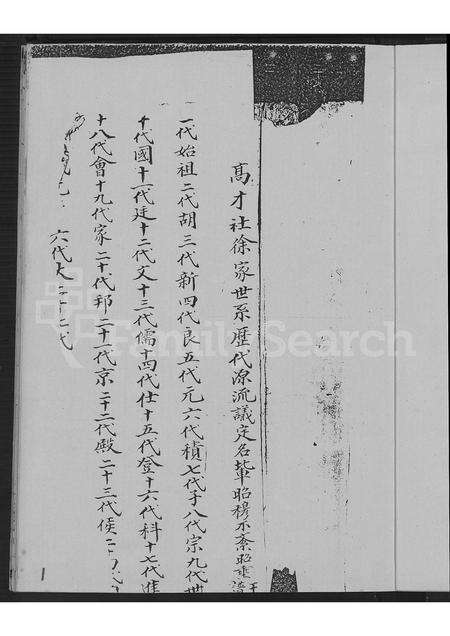 高才社徐家世系歷代源流議定名輩昭穆不紊昭垂
一代始祖二代胡三代新四代良五代元六代積七代子八代宗九代世
十代國十一代廷十二代文十三代儒十四代仕十五代登十六代科十七代進
十八代會十九代家二十代邦二十一代京二十二代殿二十三代侯二十
六代大二十二代
FamilySearch
1